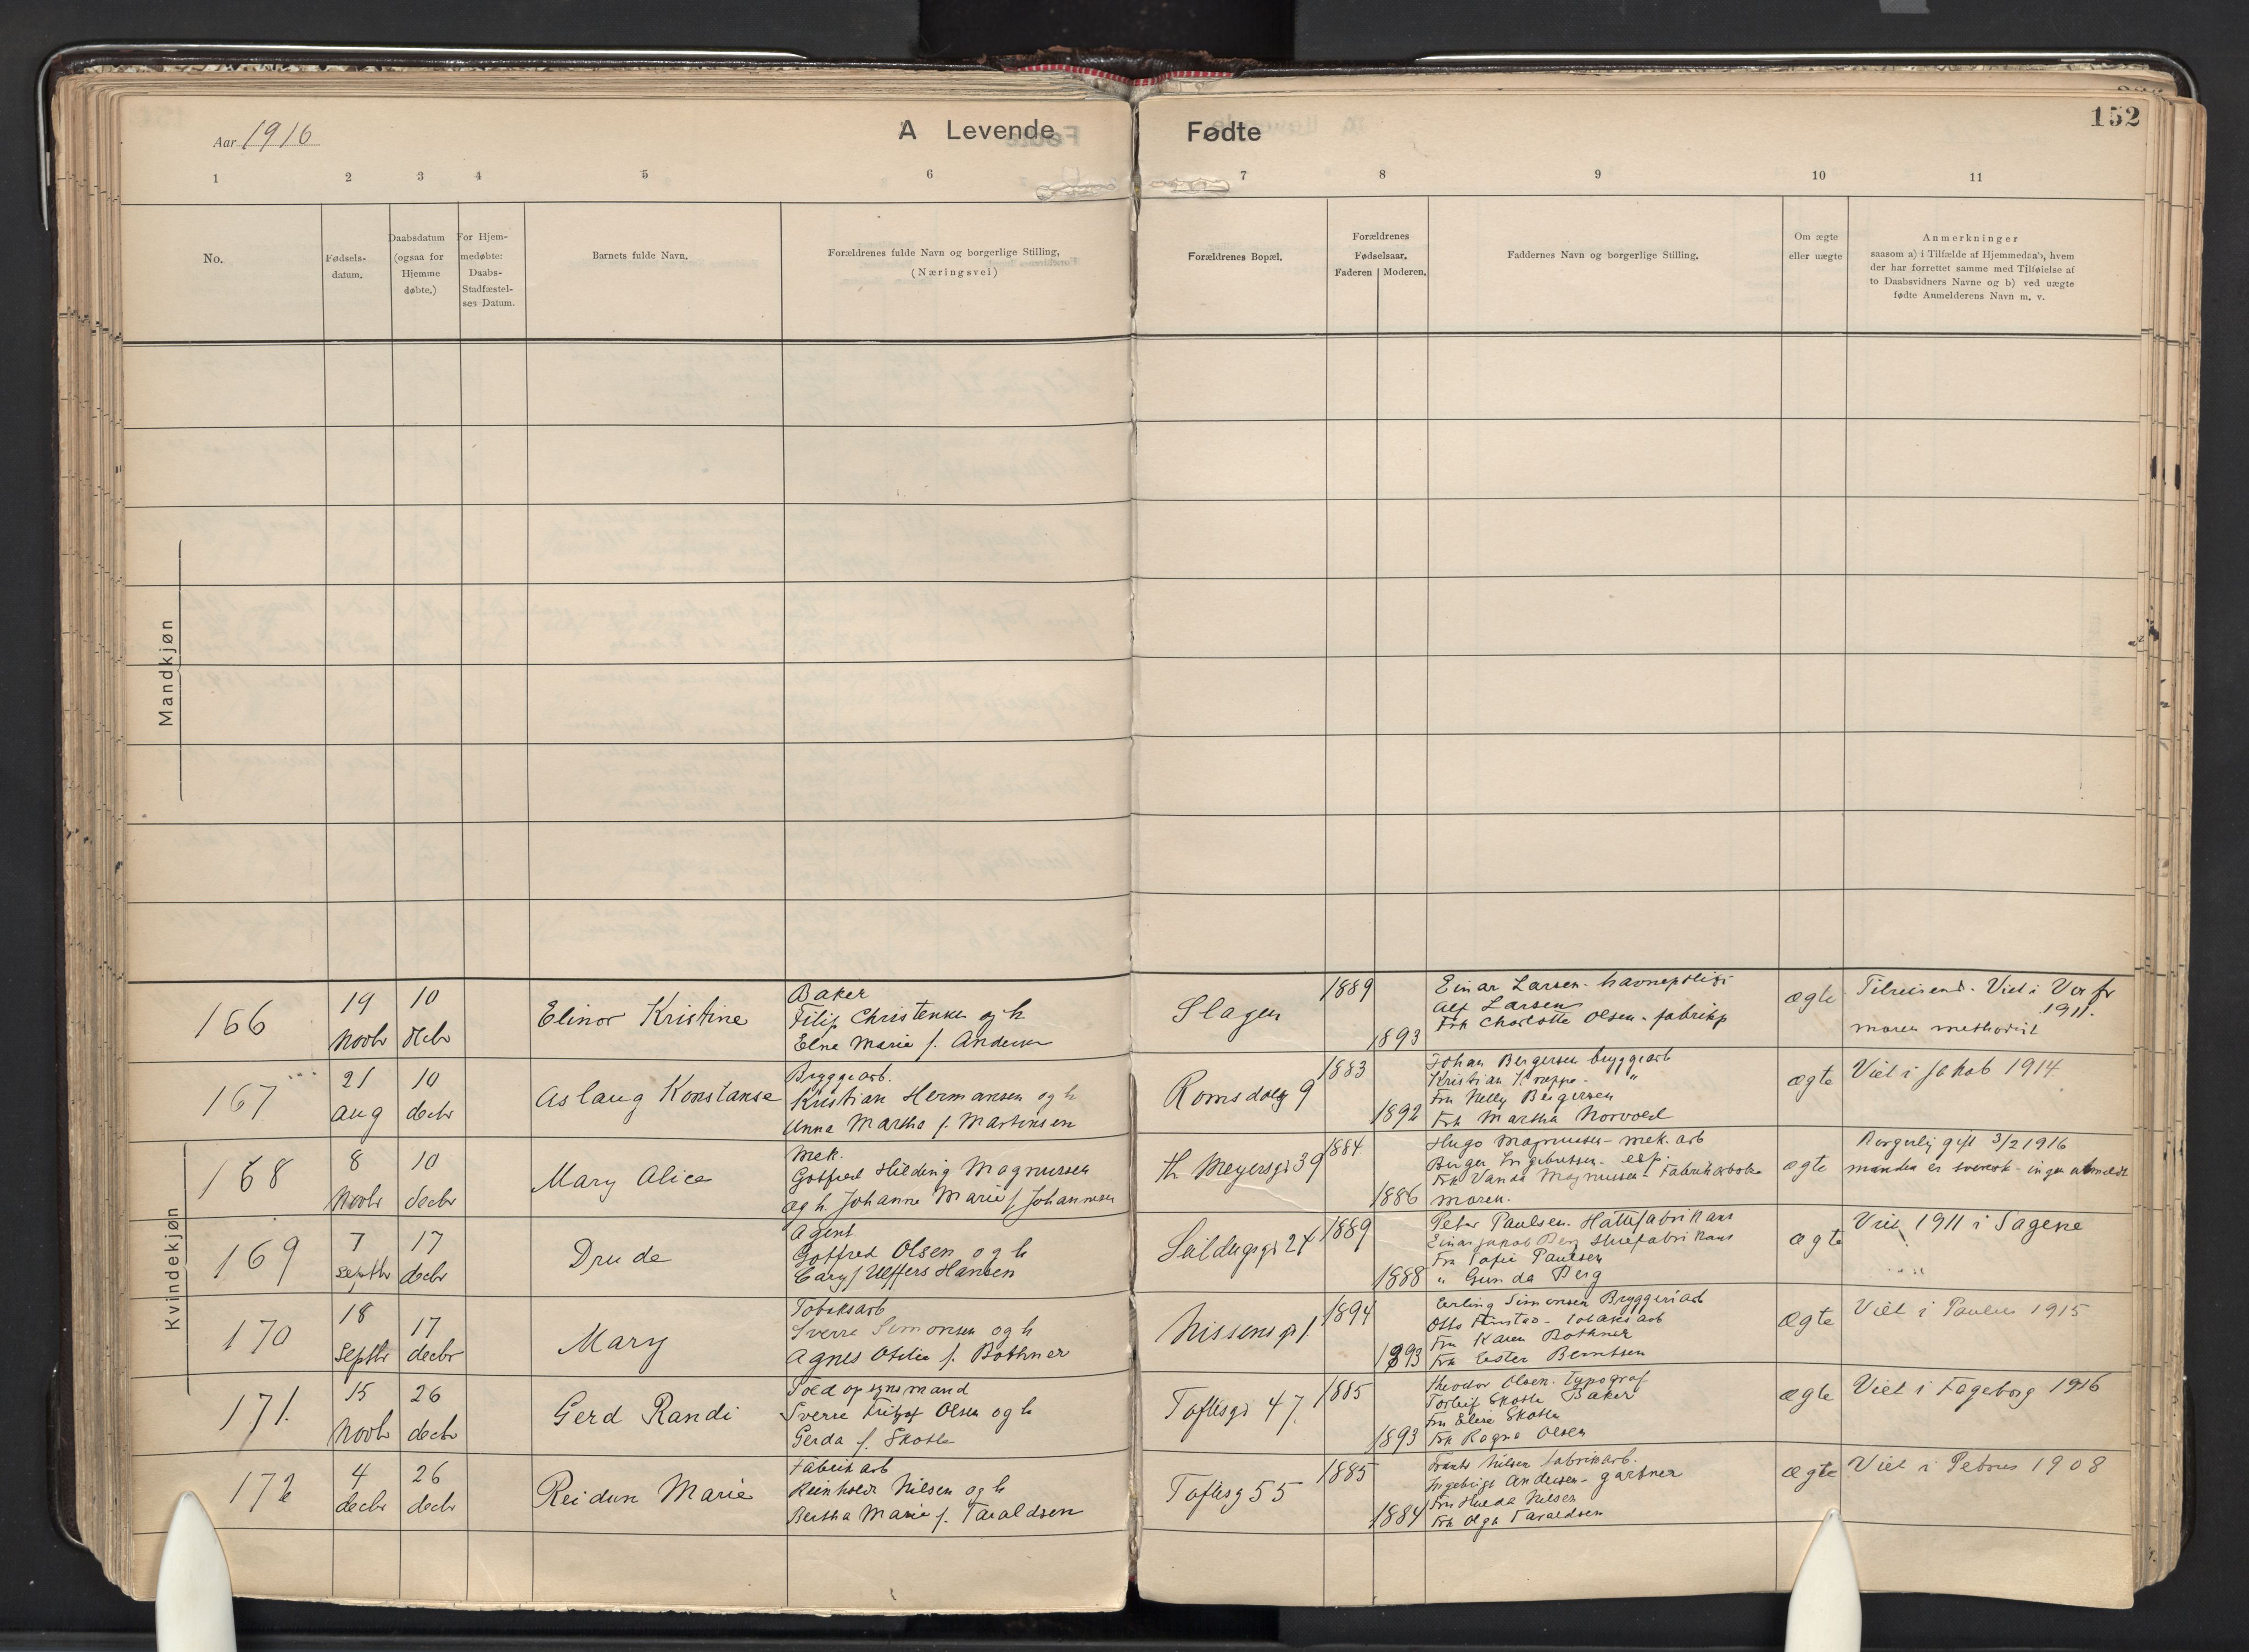 152
Aar 1916
A Levende
Fødte
1 2 3 4 5 6 7 8 9 10 11
No.
Fødsels-
datum.
Daabsdatum
(ogsaa for
Hjemme
døbte.)
For Hjem-
medøbte:
Daabs-
Stadfæstel-
ses Datum.
Barnets fulde Navn.
Forældrenes fulde Navn og borgerlige Stilling,
(Næringsvei)
Forældrenes Bopæl.
Forældrenes
Fødselsaar.
Faderen Moderen.
Faddernes Navn og borgerlige Stilling.
Om ægte
eller uægte
Anmerkninger
saasom a) i Tilfælde af Hjemmedaab, hvem
der har forrettet samme med Tilføielse af
to Daabsvidners Navne og b) ved uægte
fødte Anmelderens Navn m. v.
Mandkjøn
Kvindekjøn
166
19
Novbr
10
decbr
Elinor Kristine
Baker
Filip Christensen og h
Elna Marie f. Andersen
Slagen
1889
1893
Einar Larsen - havnepoliti
Alf Larsen
Frk Charlotte Olsen - fabrikp
ægte
Tilreisende. Viet i Vor fr
1911.
moren methodist
167
21
aug
10
decbr
Aslaug Konstanse
Bryggearb.
Kristian Hermansen og h
Anna Martha f. Martinsen
Romsdalsg 9
1883
1892
Johan Bergersen bryggearb
Kristian
Fru Nelly Bergersen
Frk Martha Norvold
ægte
Viet i Jakob 1914
168
8
Novbr
10
decbr
Mary Alice
Mek.
Gotfred Hilding Magnussen
og h. Johanne Marie f Johannesen
Th Meyersgt 39
1884
1886
Hugo Magnussen - mek. arb
Birger Ingebretsen - exp.
Frk Vanda Magnussen - Fabrikarbeiderske
Moren.
ægte
Borgerlig gift 3/2 1916
manden er svensk - ingen utmeldt
169
7
Septbr
17
decbr
Drude
Agent
Gotfred Olsen og h
Cary f Ulffers Hansen
Seildugsgt 24
1889
1888
Peter Paulsen. Hattefabrikant
Einar Jakob Berg Huefabrikant
Fru Sofie Paulsen
" Gunda Berg
ægte
Viet 1911 i Sagene
170
18
Septbr
17
decbr
Mary
Tobaksarb
Sverre Simonsen og h
Agnes Otilie f. Bothner
Nissensgt 1
1894
1893
Erling Simonsen Bryggeriarb
Otto Finstad - Tobaksarb
Fru Karen Bothner
Frk Ester Berntsen
ægte
Viet i Paulus 1915
171.
15
Novbr
26
decbr
Gerd Randi
Toldopsynsmand
Sverre Fritjof Olsen og h
Gerda f. Skotte
Toftesgt 47
1885
1893
Theodor Olsen. Typograf
Torleif Skotte Baker
Fru Elise Skotte
Frk Ragna Olsen
ægte
Viet i Fageborg 1916
172
4
decbr
26
decbr
Reidun Marie
Fabrikarb
Reinholdt Nilsen og h
Bertha Marie f. Taraldsen
Toftesg 55
1885
1884
Frants Nilsen fabrikarb.
Ingebrigt Andersen - gartner
Fru Hulda Nilsen
Frk Olga Taraldsen
ægte
Viet i Petrus 1908